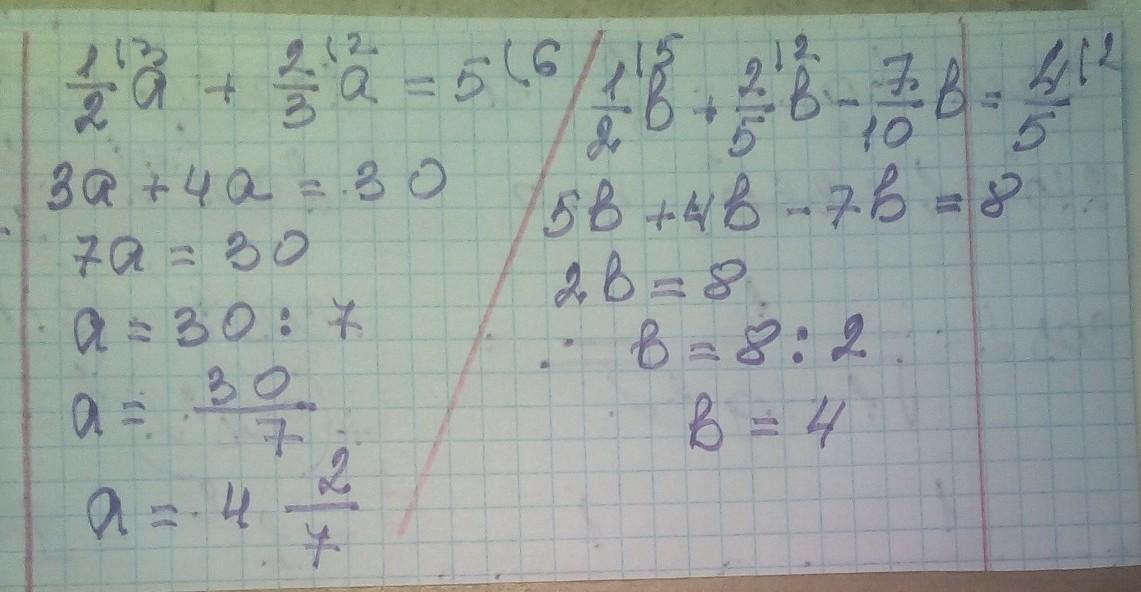 1/2 (3 a + 2/3 (2 a = 5 (6
3a + 4a = 30
7a = 30
a = 30 : 7
a = 30/7
a = 4 2/7
1/2 (5 в + 2/5 (2 в - 7/10 в = 4/5 (2
5в + 4в - 7в = 8
2в = 8
в = 8 : 2
в = 4